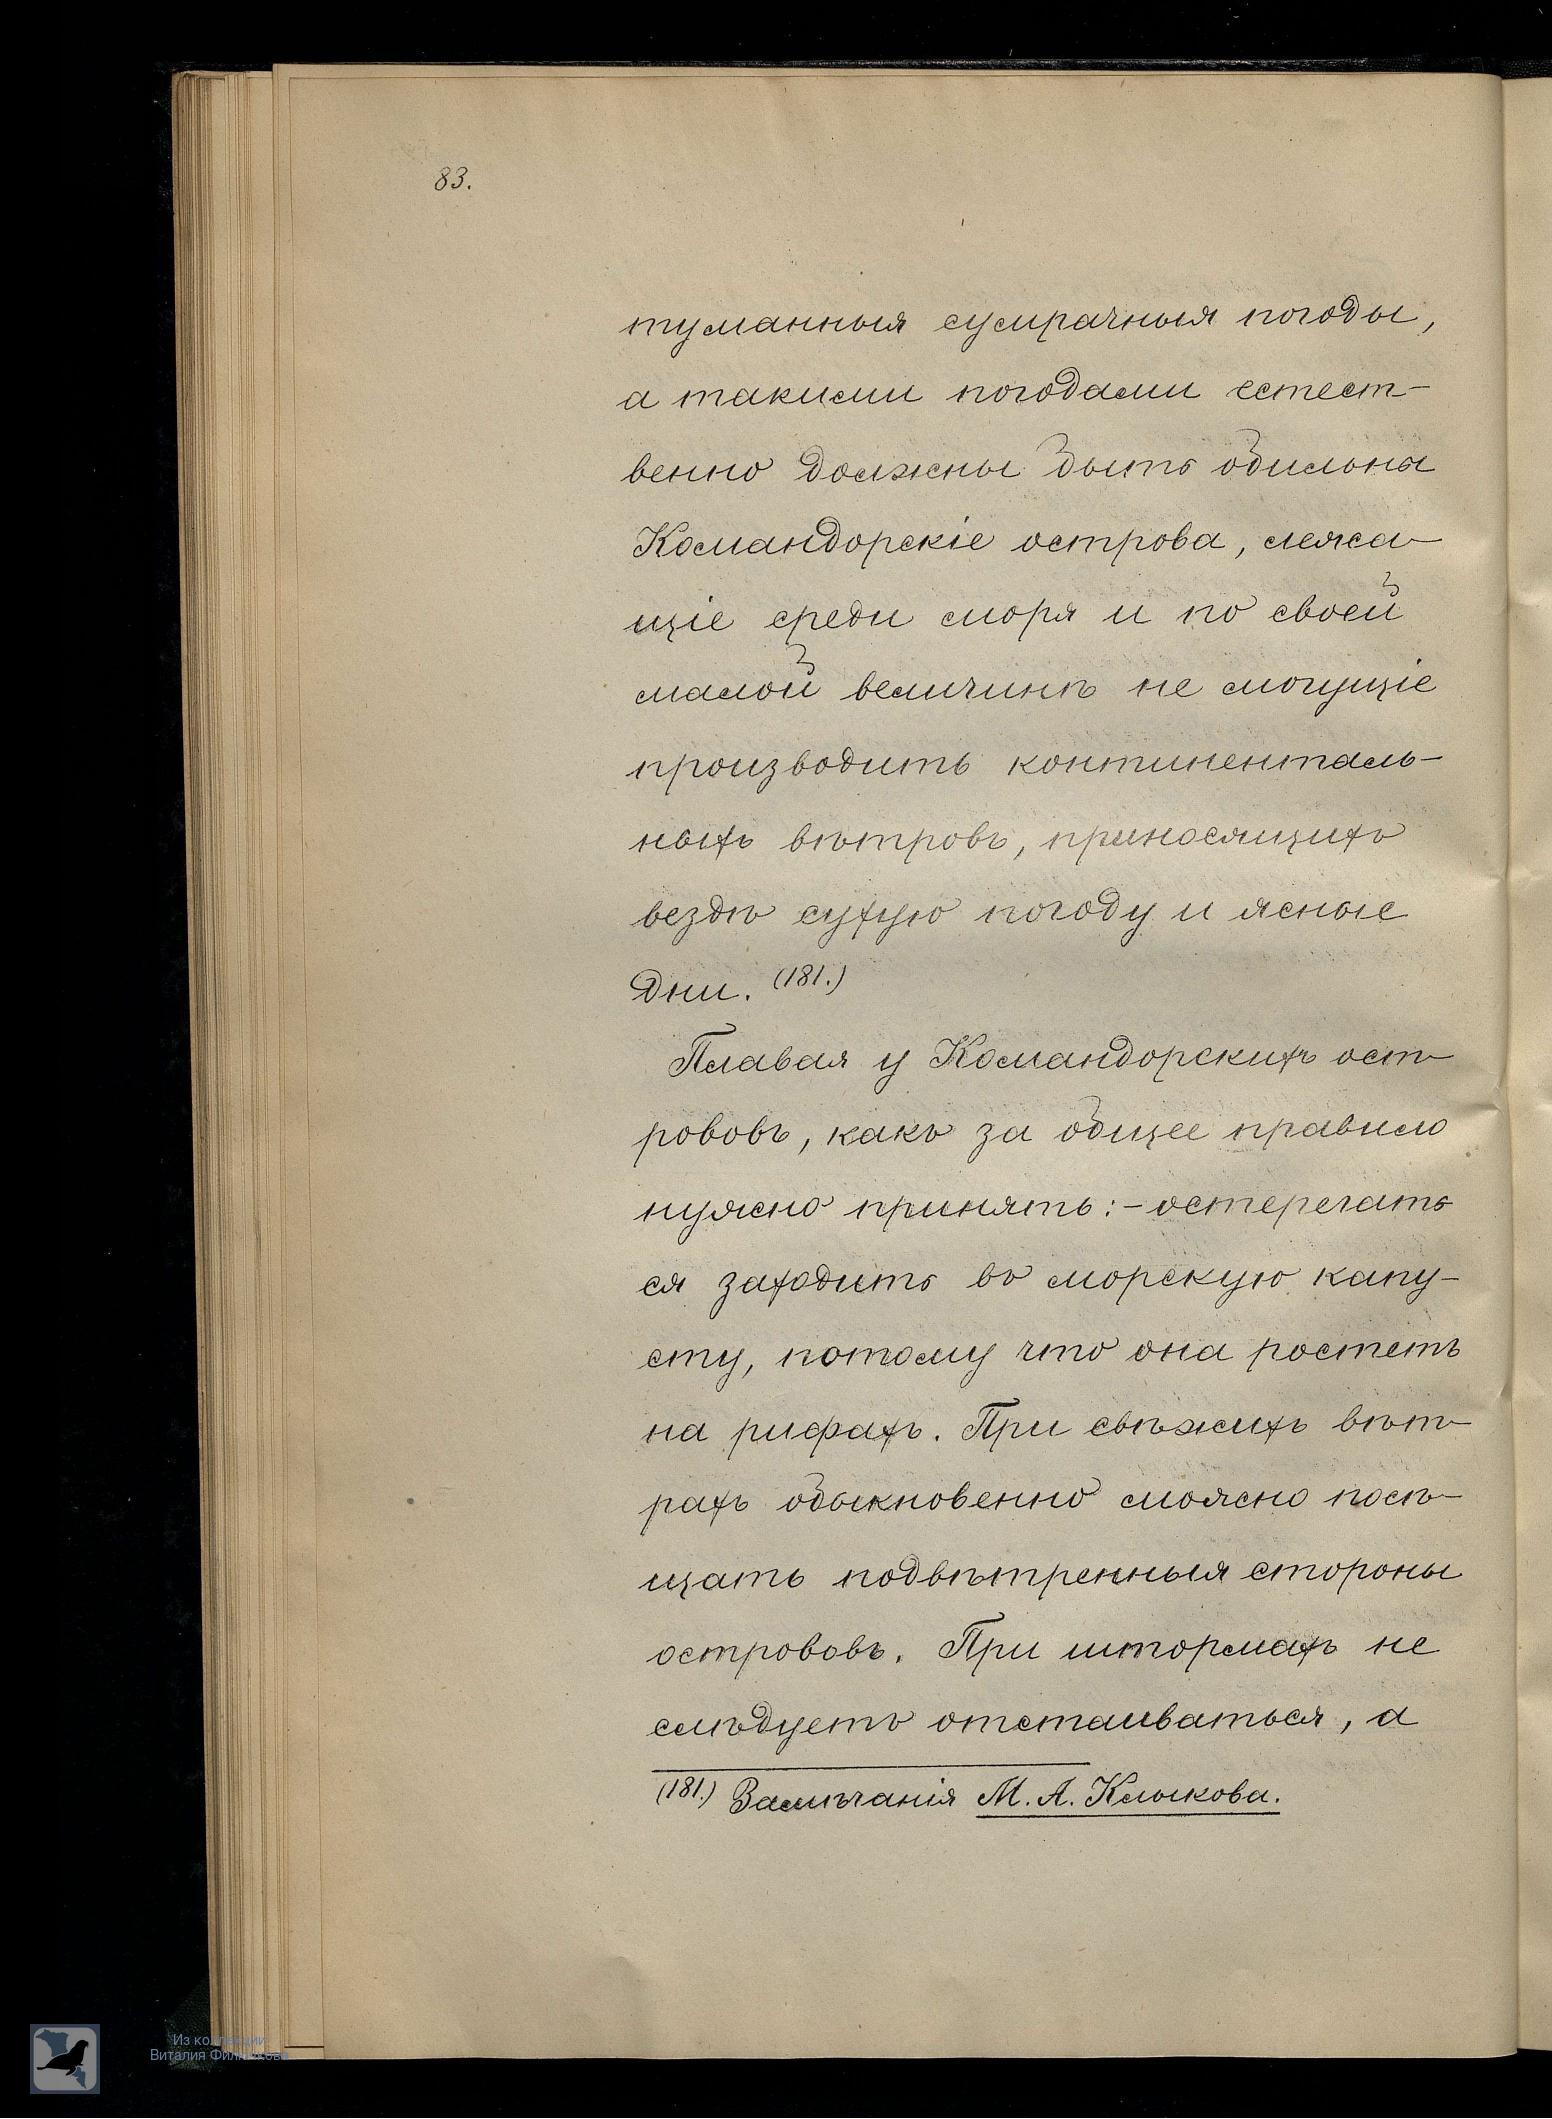 83.
туманныя сумрачныя погоды,
а такими погодами естест-
венно должны быть обильны
Командорскіе острова, лежа-
щіе среди моря и по своей
малой величинѣ не могущіе
производить континенталь-
ныхъ вѣтровъ, приносящихъ
вездѣ сухую погоду и ясные
дни. (181.)
Плавая у Командорскихъ ост-
рововъ, какъ за общее правило
нужно принять:-остерегать
ся заходить въ морскую капу-
сту, потому что она ростетъ
на рифахъ. При свѣжихъ вѣт-
рахъ обыкновенно можно посѣ-
щать подвѣтренныя стороны
острововъ. При штормахъ не
слѣдуетъ отстаиваться, а
(181.) Замѣчанія М. А. Клыкова.
Из коллекции
Виталия